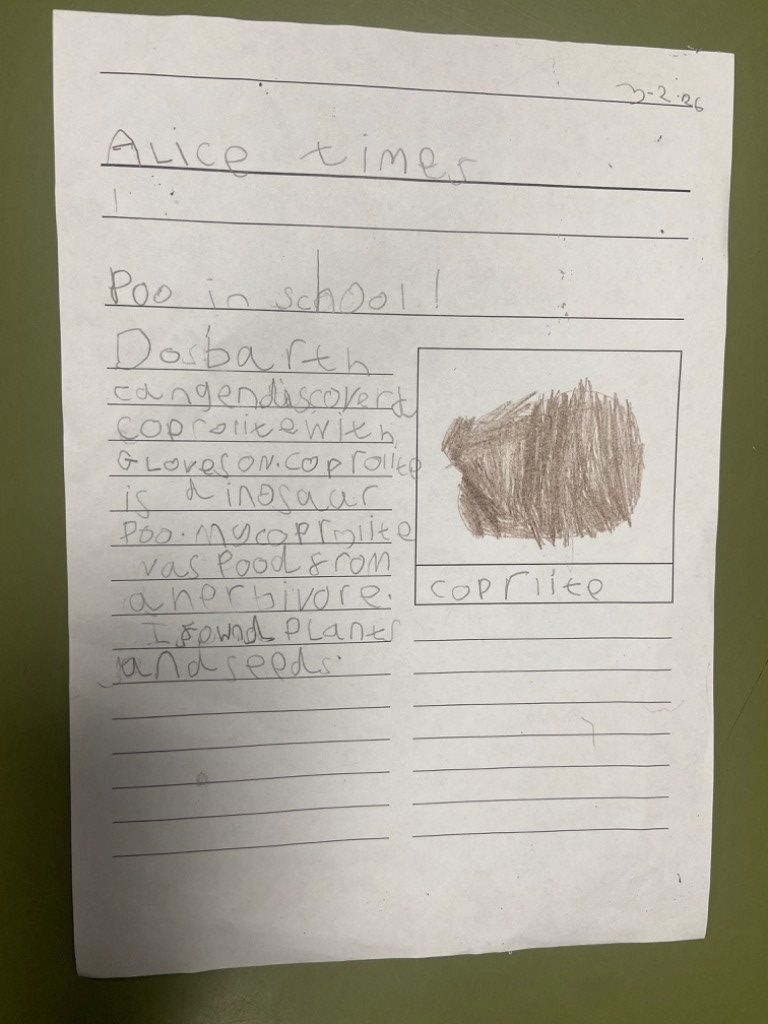 3-2-26
ALice times
Poo in school!
Dosbarth
cangendiscovert
coprolitewith
GLovesON.coproliite
is dinosaur
Poo.Mycoproliite
vas Pood from
anerbivore.
I fownd PLants
andseeds.
copriite